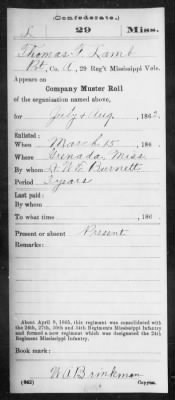 (Confederate.)
L 29 Miss.
Thomas F. Lamb
Pvt, Co. A, 29 Reg't Mississippi Vols.
Appears on
Company Muster Roll
of the organization named above,
for July & Aug, 1862.
Enlisted:
When March 15, 186 .
Where Grenada, Miss
By whom Lt. W. E. Burnett
Period 3 years
Last paid:
By whom
To what time , 186 .
Present or absent Present
Remarks:
About April 9, 1865, this regiment was consolidated with
the 24th, 27th, 30th and 34th Regiments Mississippi Infantry
and formed a new regiment which was designated the 24th
Regiment Mississippi Infantry.
Book mark:
W A Brinkman
(642) Copyist.